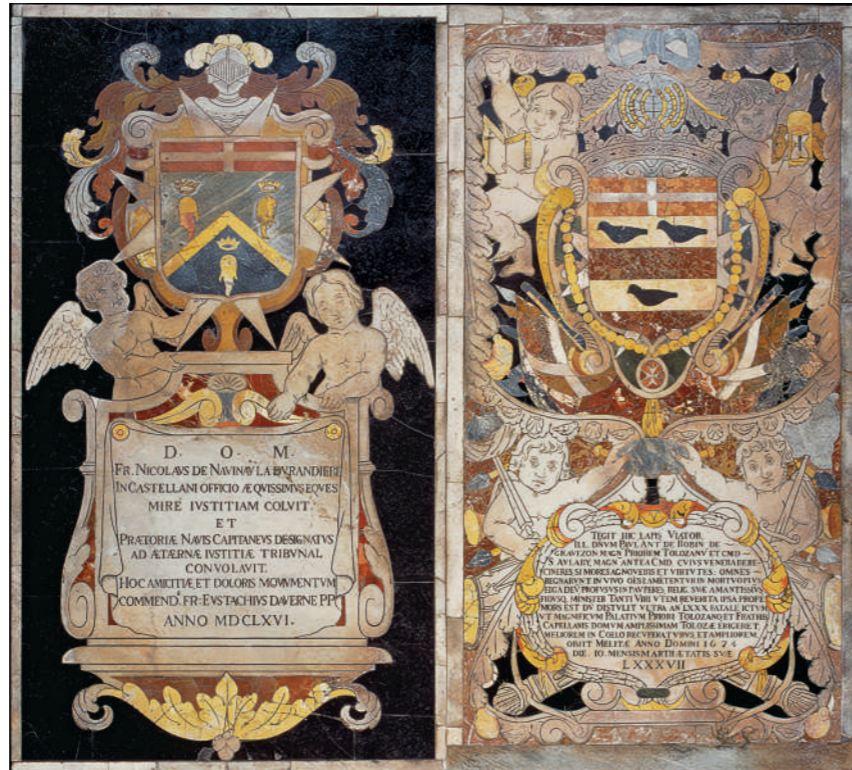 D. O. M.
FR. NICOLAVS DE NAVINAVLABVRANDIERE
IN CASTELLANI OFFICIO ÆQVISSIMVS EQVES
MIRE IVSTITIAM COLVIT
ET
PRÆTORIÆ NAVIS CAPITANEVS DESIGNATVS
AD ÆTÆRNÆ IVSTITIÆ TRIBVNAL
CONVOLAVIT.
HOC AMICITIÆ ET DOLORIS MOVMENTVM
COMMEND. FR: EVSTACHIVS DAVERNE PP.
ANNO MDCLXVI.
TEGIT HIC LAPIS VIATOR
ILL. DNVM PAVL ANT DE ROBIN DE
GRAVEZON MAGN PRIOREM TOLOZANV ET CMD
S AVLARY, MAGN ANTEA CMD. CVIVS VENERABERE
CINERES SI MORES AGNOVERIS ET VIRTVTES: OMNES
REGNARVNT IN VIVO OES LAMETENTVR IN MORTVO PIVS
EIGA DEV PROFVSVS IN PAVPERES, RELIG. SVÆ AMANTISSIVS
MINISTER TANTI VIRI VTEM REVERITA IPSA
MORS EST DV DISTVLIT VLTRA AN LXXX FATALE ICTVM
VT MAGNIFICVM PALATIVM PRIORI TOLOZANO ET FRATRIB
CAPELLANIS DOMVM AMPLISSIMAM TOLOZÆ ERIGERET
MELIOREM IN COELO RECVPERATVRVS ET AMPLIOREM.
OBIIT MELITÆ ANNO DOMINI 1674
DIE 10. MENSIS MARTII ÆTATIS SVÆ
LXXXVII